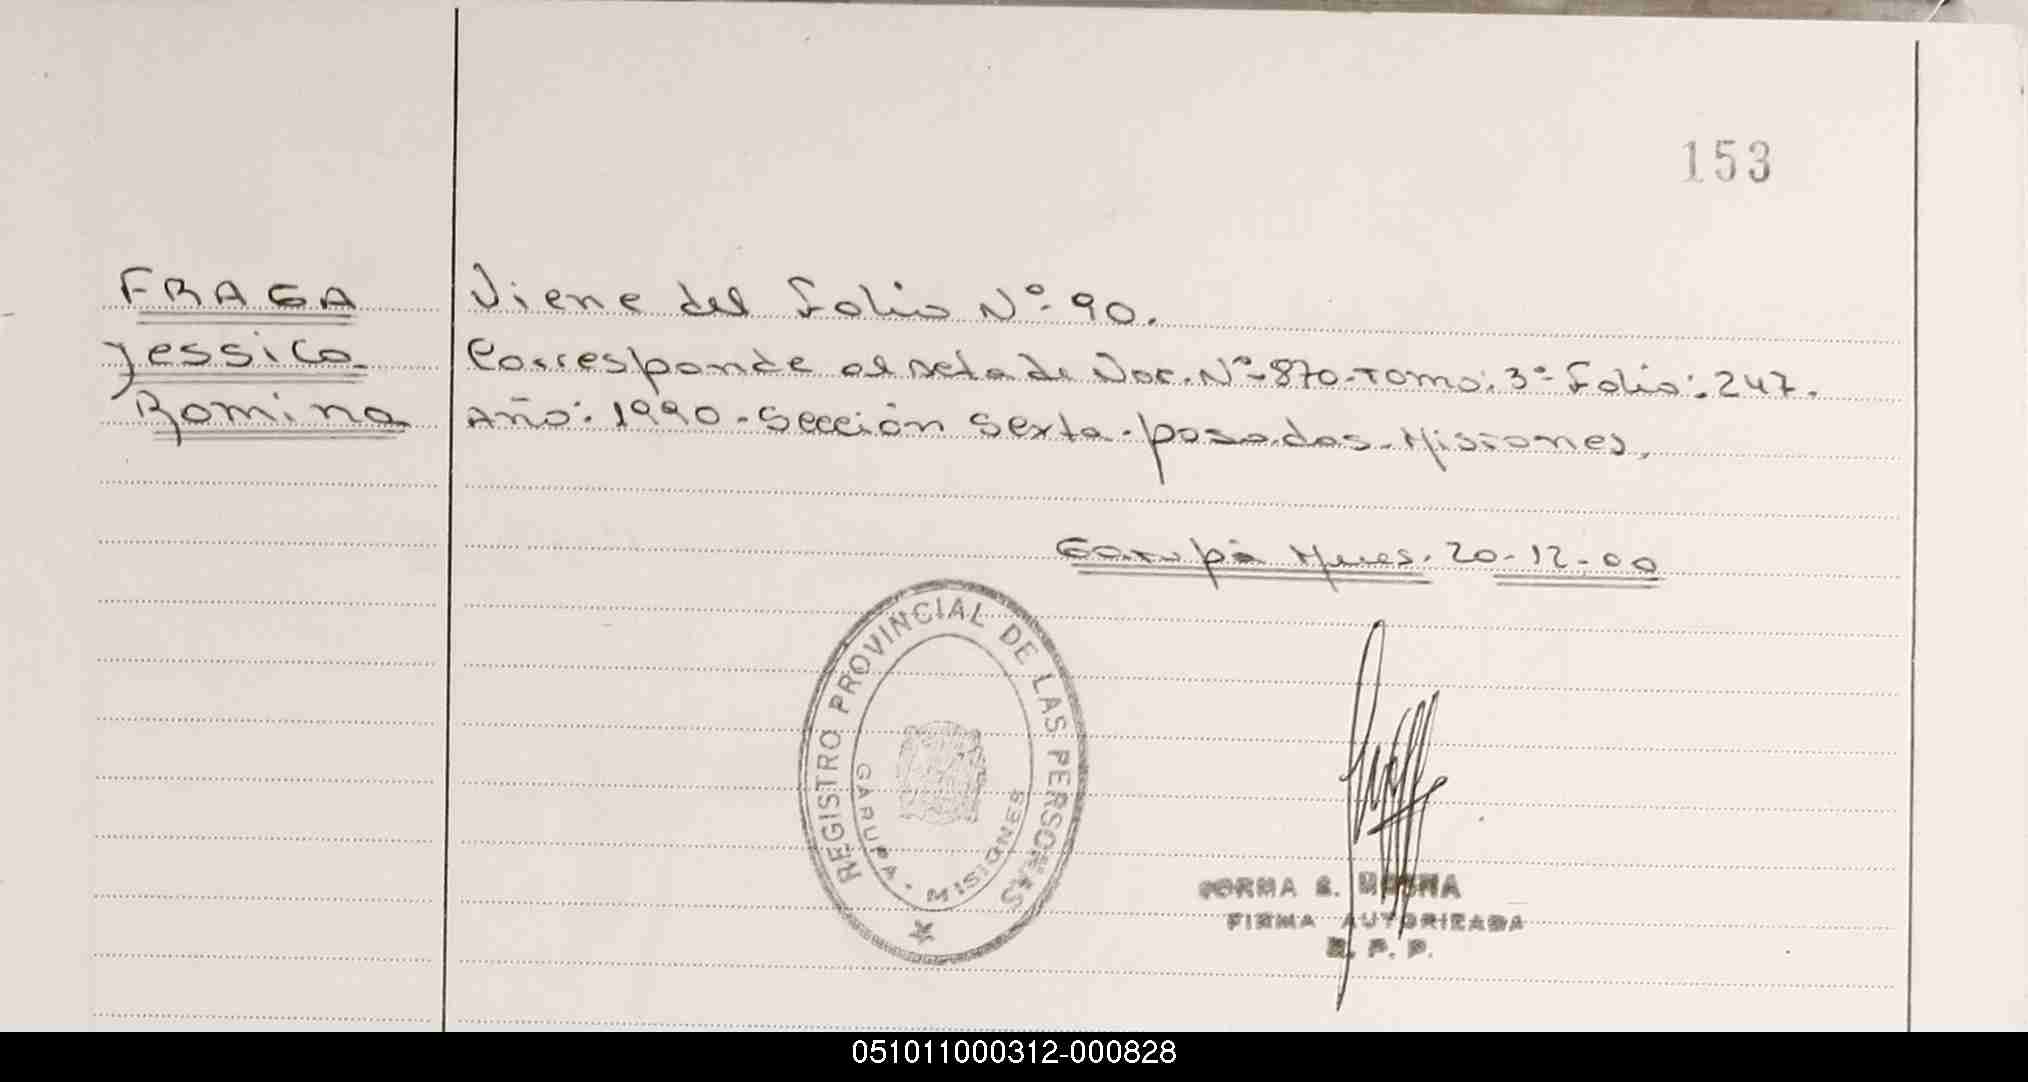 153
FRAGA
Jessica
Romina
Viene del Folio Nº 90.
Corresponde al acta de Nac. Nº 870-Tomo: 3º Folio: 247.
Año: 1990 - Sección Sexta - Posadas - Misiones.
Garupá Mnes. 20-12-00
REGISTRO PROVINCIAL DE LAS PERSONAS
GARUPA - MISIONES
S.
FIRMA AUTORIZADA
R. P. P.
051011000312-000828